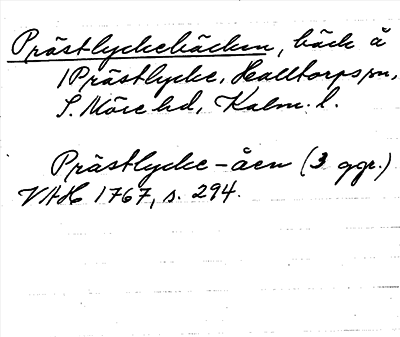 Prästlyckebäcken, bäck å
1 Prästlycke, Halltorps sn,
S. Möre hd, Kalm. l.
Prästlycke-åen (3 ggr.)
VAH 1767, s. 294.